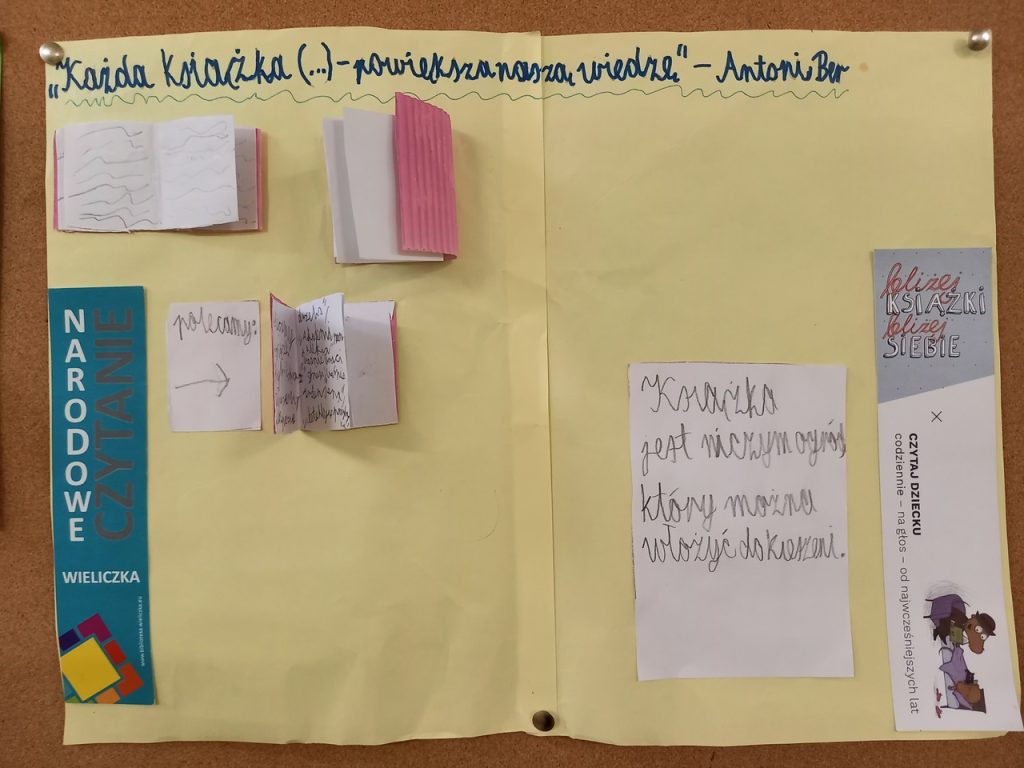 „Każda Książka (...) - powiększa naszą wiedzę" - Antoni Ber
NARODOWE
CZYTANIE
WIELICZKA
polecamy:
Książka
jest niczym ogród
który można
włożyć do kieszeni.
bliżej
KSIĄŻKI
bliżej
SIEBIE
CZYTAJ DZIECKU
codziennie – na głos – od najwcześniejszych lat